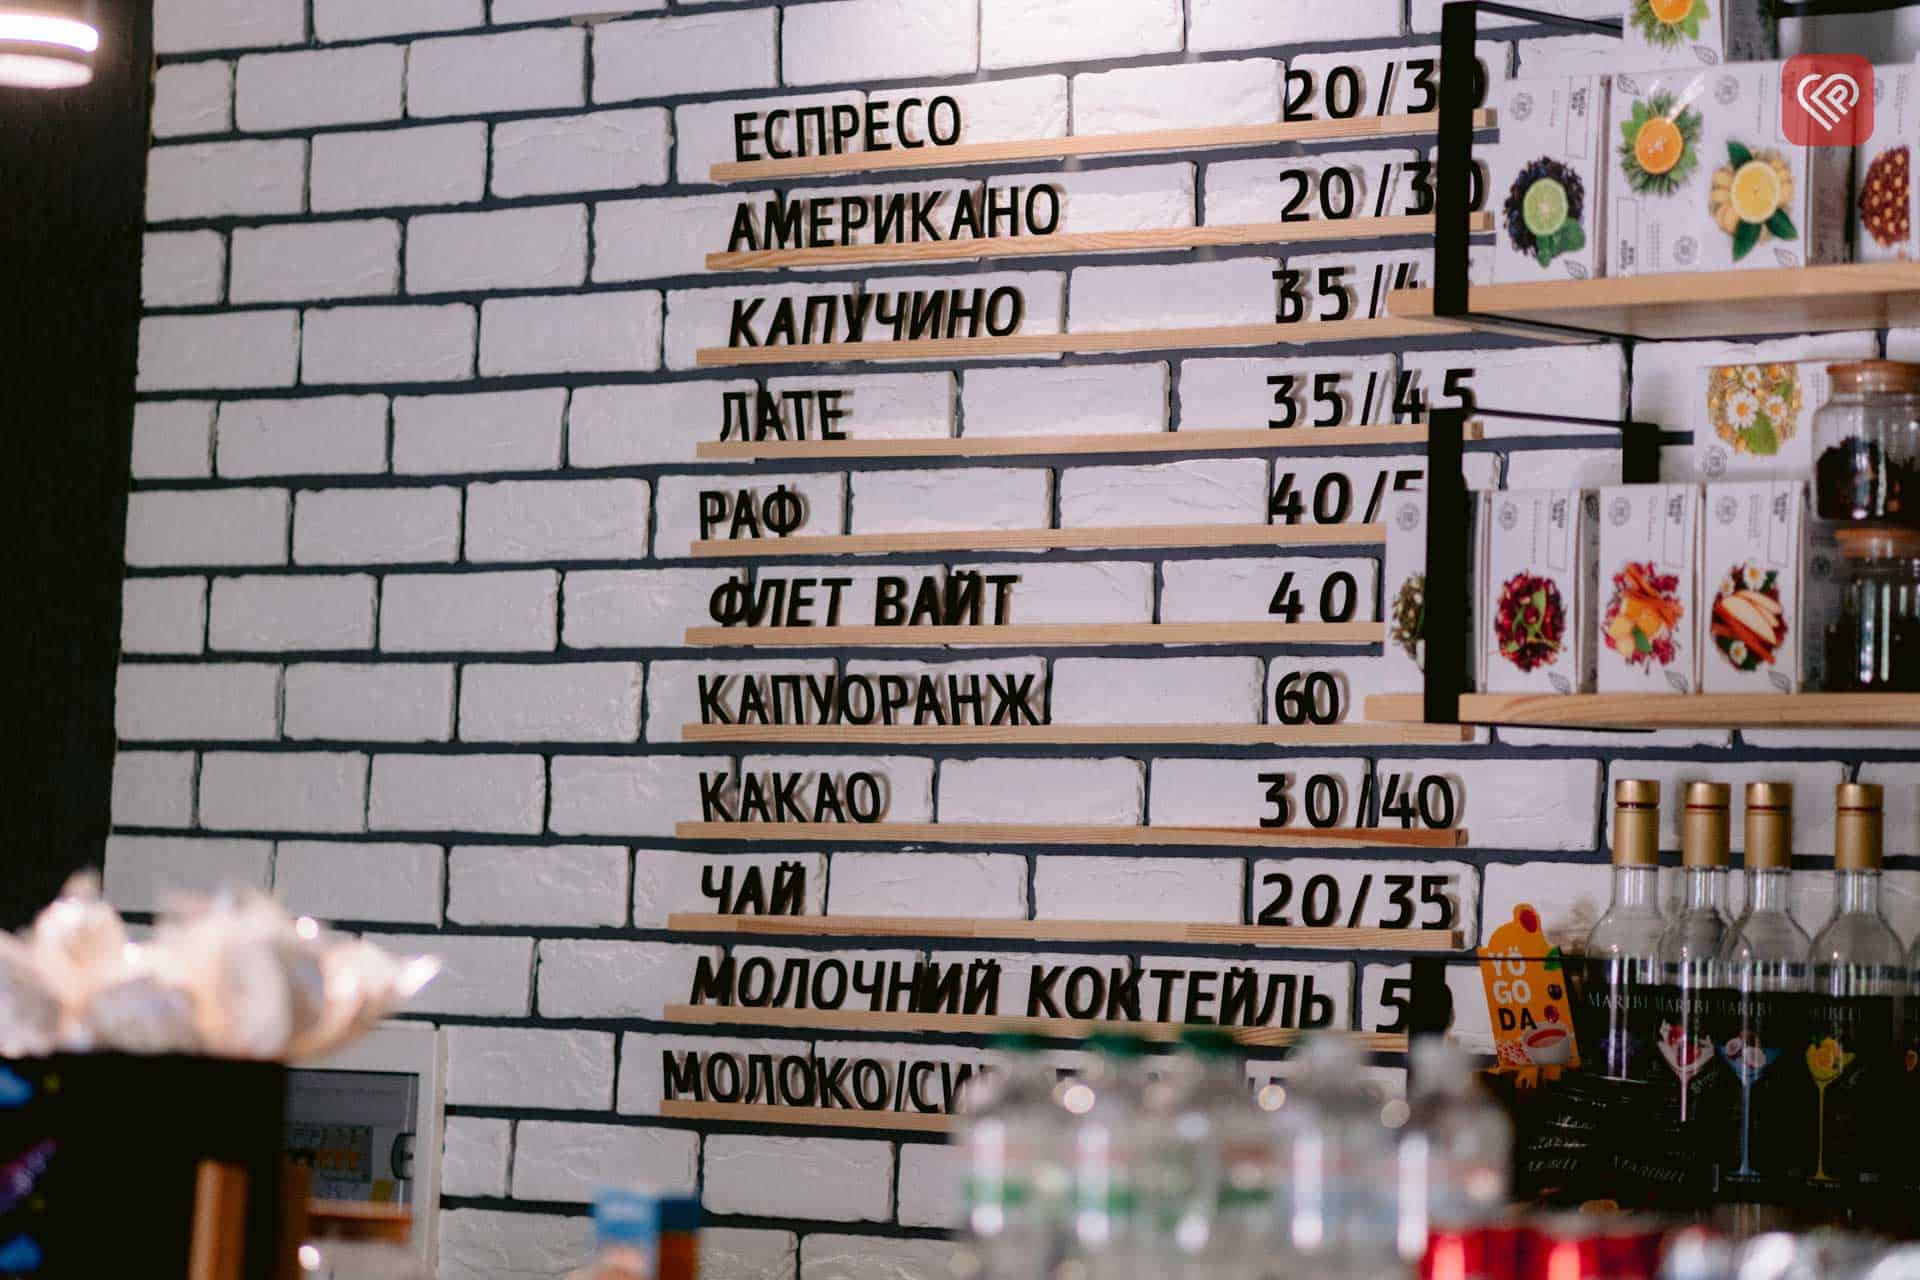 ЕСПРЕСО 20/30
АМЕРИКАНО 20/30
КАПУЧИНО 35/
ЛАТЕ 35/45
РАФ 40/
ФЛЕТ ВАЙТ 40
КАПУОРАНЖ 60
КАКАО 30/40
ЧАЙ 20/35
МОЛОЧНИЙ КОКТЕЙЛЬ
МОЛОКО/
YO
GO
DA
MARIBELL